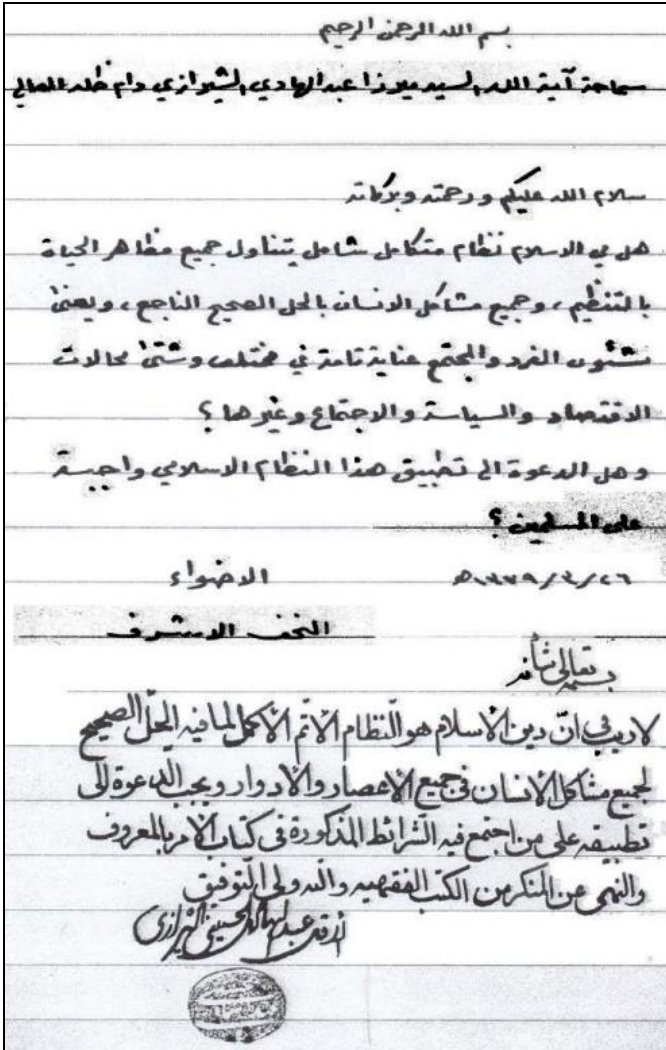 بسم الله الرحمن الرحيم
سماحة آية الله السيد ميرزا عبد الهادي الشيرازي دام ظله العالي
سلام الله عليكم ورحمته وبركاته
هل في الاسلام نظام متكامل شامل يتناول جميع مظاهر الحياة
بالتنظيم ، وجميع مشاكل الانسان بالحل الصحيح الناجع ، ويعنى
بشئون الفرد والمجتمع عناية تامة في مختلف وشتى مجالات
الاقتصاد والسياسة والاجتماع وغيرها ؟
وهل الدعوة الى تطبيق هذا النظام الاسلامي واجبة
على المسلمين ؟
٢٦/٣/١٣٧٩هـ الاضواء
النجف الاشرف
بسمه تعالى شأنه
لا ريب في انّ دين الأسلام هو النّظام الأتمّ الأكمل لما فيه الحلّ الصحيح
لجميع مشاكل الأنسان في جميع الأعصار والأدوار ويجب الدعوة الى
تطبيقه على من اجتمع فيه الشّرائط المذكورة في كتاب الأمر بالمعروف
والنهى عن المنكر من الكتب الفقهيه والله ولى التّوفيق
عبد الهادي الحسيني الشيرازي